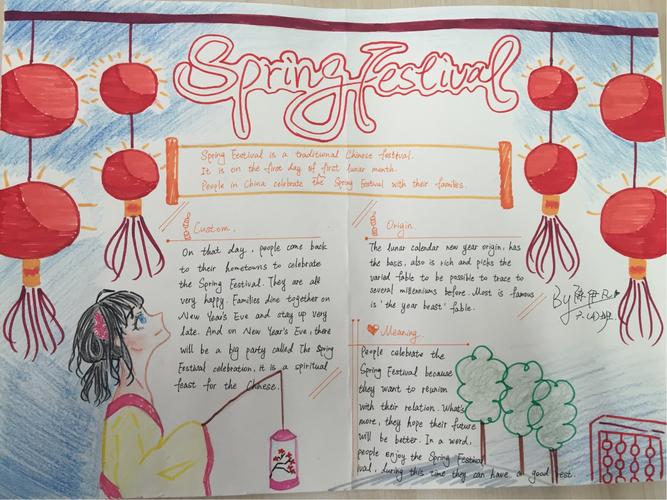 Spring Festival
Spring Festival is a traditional Chinese festival.
It is on the first day of first lunar month.
People in China celebrate the Spring Festival with their families.
Custom
On that day, people come back
to their hometowns to celebrate
the Spring Festival. They are all
very happy. Families dine together on
New Year's Eve and stay up very
late. And on New Year's Eve, there
will be a big party called The Spring
Festival celebration, it is a spiritual
feast for the Chinese.
Origin
The lunar calendar new year origin, has
the basis, also is rich and picks the
varied fable to be possible to trace to
several millenniums before. Most is famous
is "the year beast" fable.
By
Meaning
People celebrate the
Spring Festival because
they want to reunion
with their relation. What's
more, they hope their future
will be better. In a word,
people enjoy the Spring Festival
ival, during this time they can have an good rest.